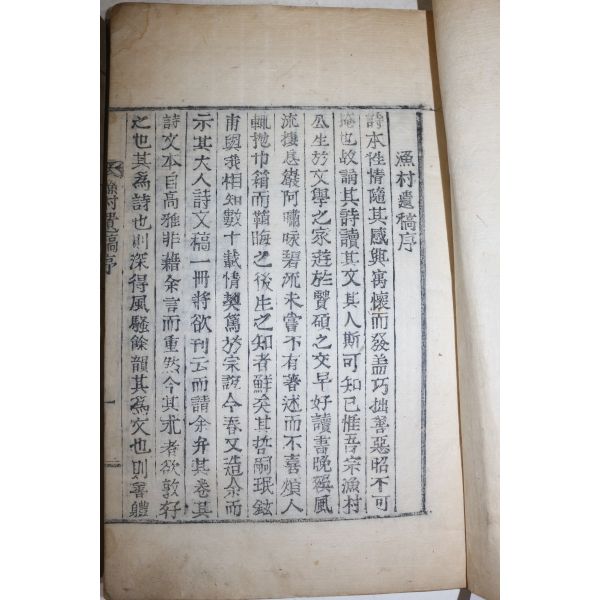 漁村遺稿序
詩本性情隨其感興寓懷而發盖巧拙善惡昭不可
掩也故誦其詩讀其文其人斯可知已惟吾宗漁村
公生於文學之家遊於賢碩之交早好讀書晩
流棲息嵒阿嘯咏碧流未嘗不有著述而不喜煩人
輒抛巾箱而鞱晦之後生之知者鮮矣其哲嗣珉鉉
甫與我相知數十載情契篤於宗誼今春又造余而
示其大人詩文稿一冊將欲刊云而請余弁其卷其
詩文本自高雅非藉余言而重然今其求者欲敦好
之也其為詩也則深得風騷餘韻其為文也則善軆
漁村遺稿序
一